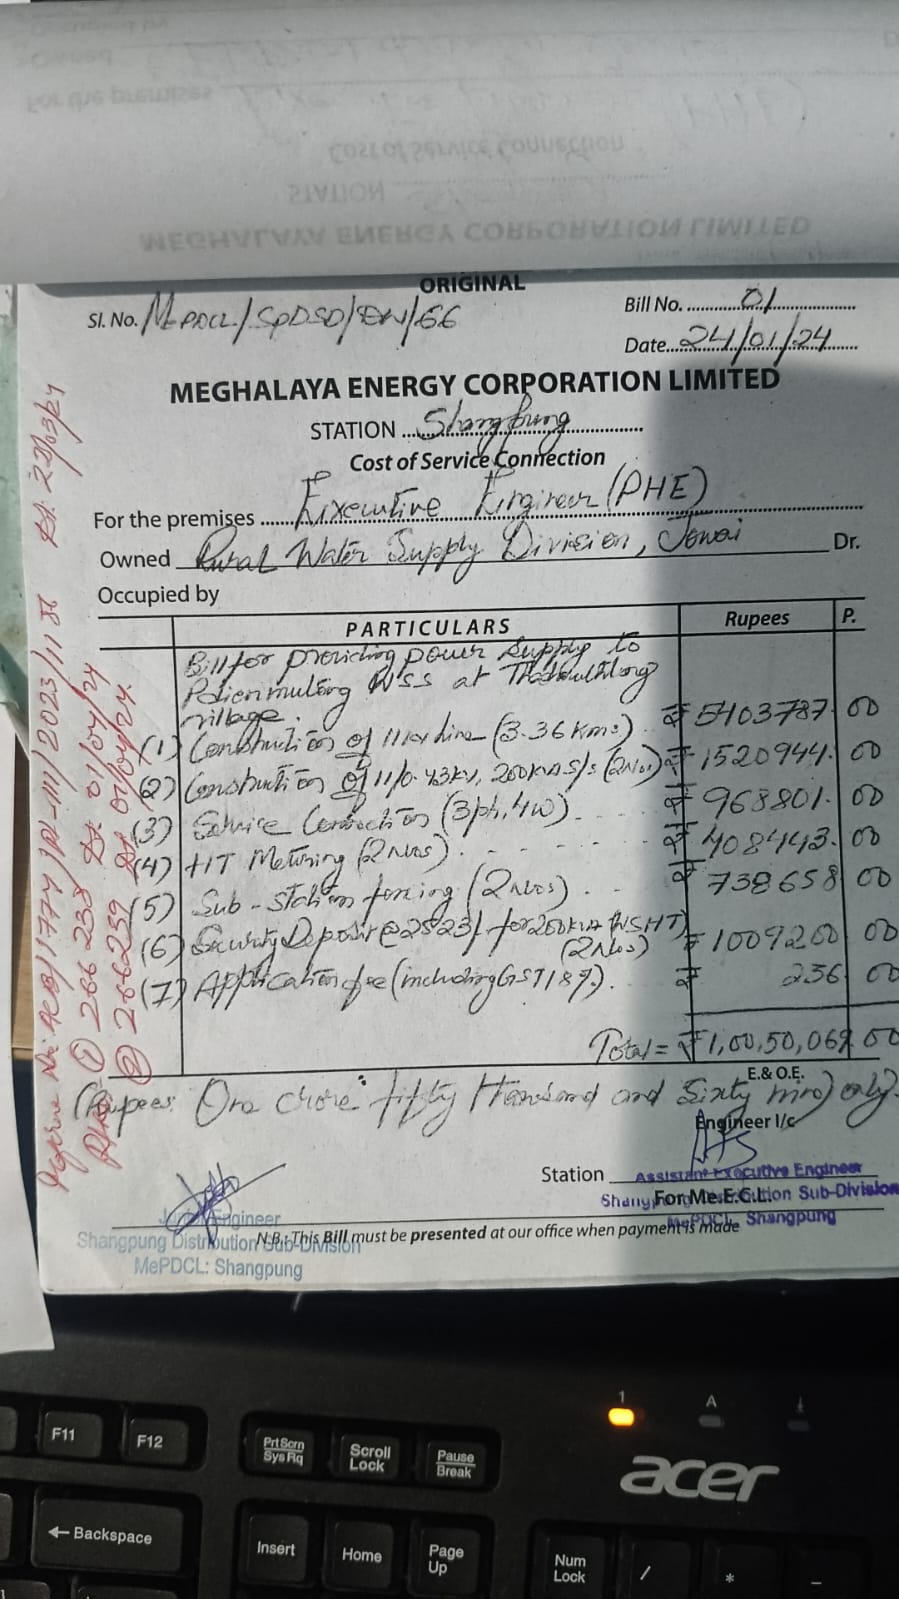 MEGHALAYA ENERGY CORPORATION LIMITED
STATION
Cost of Service Connection
For the premises
Owned
ORIGINAL
Sl. No. MePDCL/SPDSD/EW/66
Bill No. 01
Date 24/01/24
MEGHALAYA ENERGY CORPORATION LIMITED
STATION Shangpung
Cost of Service Connection
For the premises Executive Engineer (PHE)
Owned Rural Water Supply Division, Jowai Dr.
Occupied by
PARTICULARS Rupees P.
Bill for providing power supply to
WSS at
village.
(1) Construction of 11kv line (3.36 Kms) ₹ 5403787. 00
(2) Construction of 11/0.43kV, 200KVA S/S (2Nos) ₹ 1520944. 00
(3) Service Connection (3ph, 4w) ₹ 968801. 00
(4) HT Metering (2Nos) ₹ 408443. 00
(5) Sub-station fencing (2Nos) ₹ 738658 00
(6) Security Deposit @2523/- for 200KVA WSHT) (2Nos) ₹ 1009200 00
(7) Application fee (including GST 18%) ₹ 236 00
Total = ₹ 1,00,50,069.00
E.& O.E.
(Rupees One crore fifty thousand and Sixty nine) only.
Engineer I/c
Station
Assistant Executive Engineer
Shangpung Distribution Sub-Division
For Me.E.C.L.
MePDCL Shangpung
Junior Engineer
Shangpung Distribution Sub-Division
MePDCL: Shangpung
N.B.: This Bill must be presented at our office when payment is made
2023/1138 Dt. 22/03/24
① 266238 Dt. 01/04/24
② 266239 Dt. 01/04/24.
F11
F12
PrtScrn
SysRq
Scroll
Lock
Pause
Break
1
A
acer
← Backspace
Insert
Home
Page
Up
Num
Lock
/
*
-